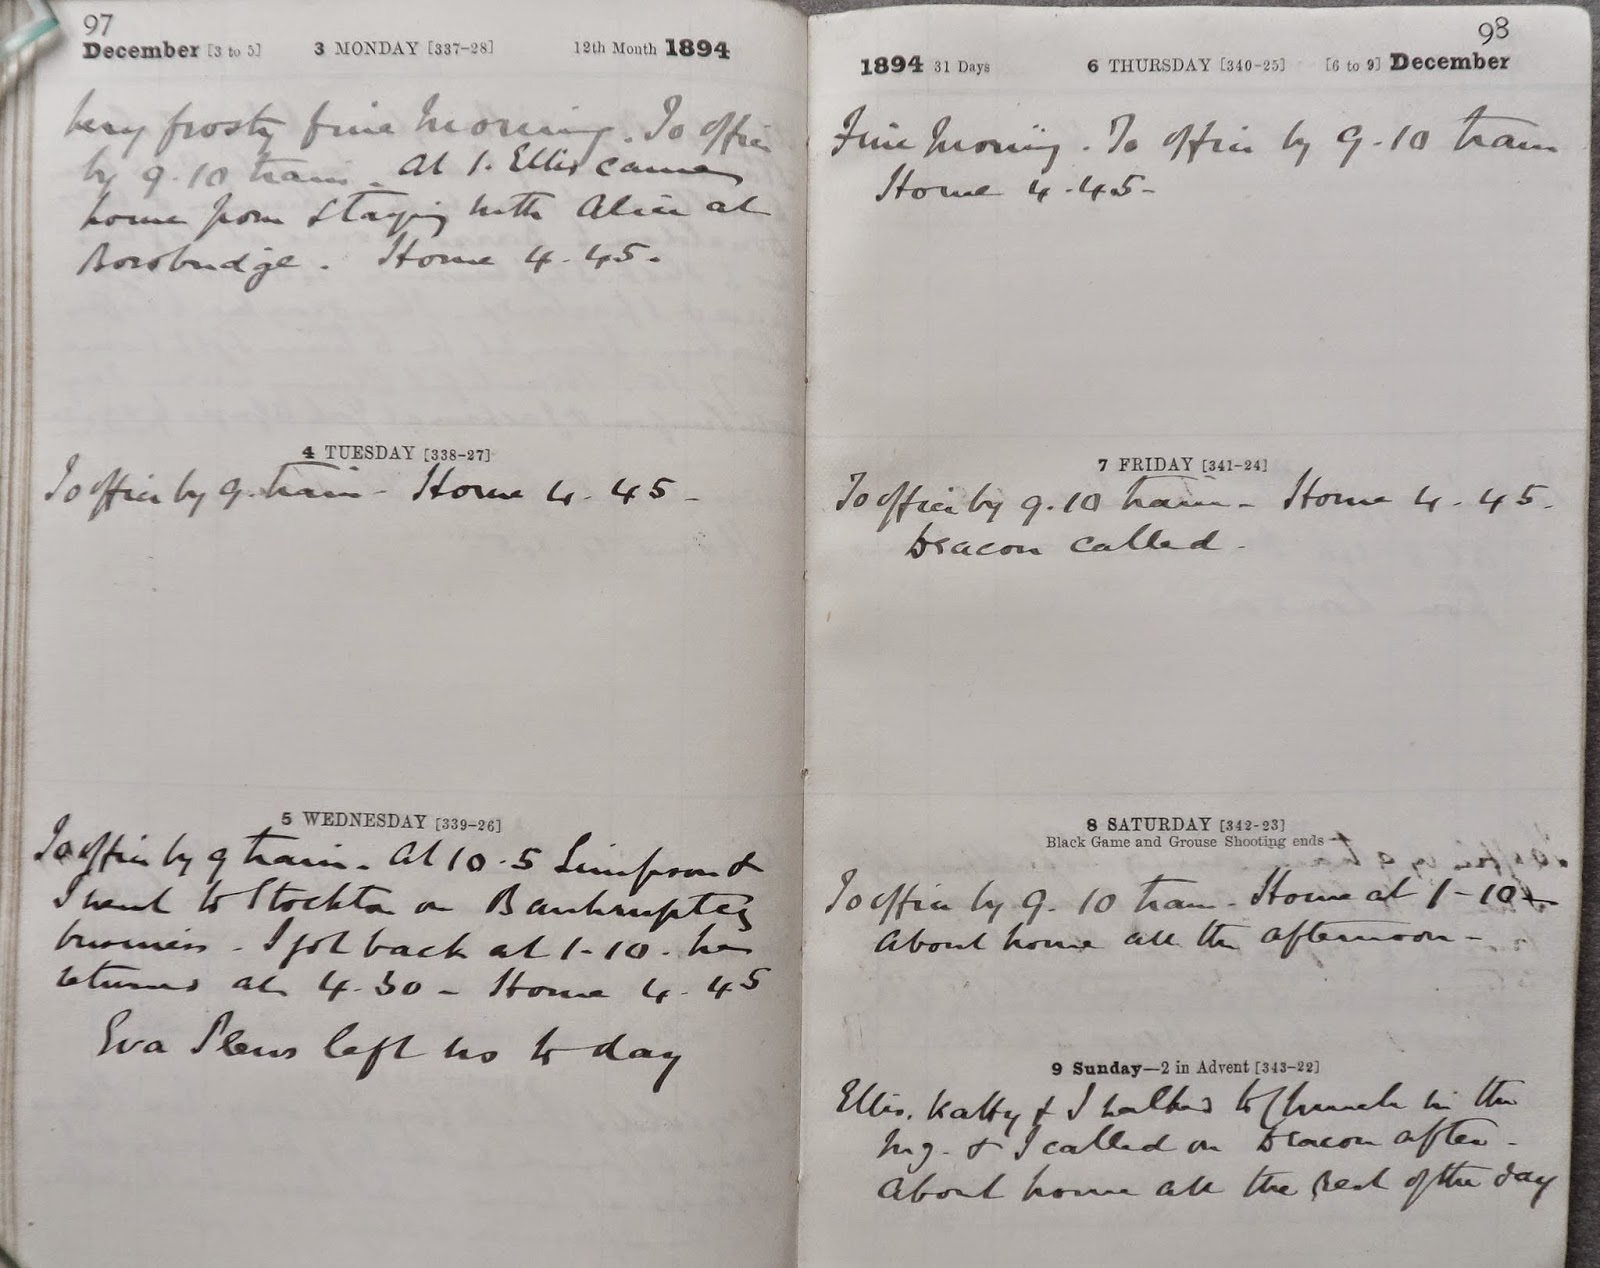 97
December [3 to 5] 3 MONDAY [337-28] 12th Month 1894
Very frosty fine morning. To office
by 9.10 train. At 1. Ellis came
home from staying with Alice at
Borobridge. Home 4.45.
4 TUESDAY [338-27]
To office by 9. train - Home 4.45 -
5 WEDNESDAY [339-26]
To office by 9 train. At 10.5 Simpson &
I went to Stockton on Bankruptcy
business. I got back at 1-10. he
returned at 4.30 - Home 4.45
Eva Plews left us to day
98
1894 31 Days 6 THURSDAY [340-25] [6 to 9] December
Fine morning. To office by 9.10 train
Home 4.45 -
7 FRIDAY [341-24]
To office by 9.10 train - Home 4.45.
Deacon called.
8 SATURDAY [342-23]
Black Game and Grouse Shooting ends
To office by 9.10 train - Home at 1-10 -
About home all the afternoon -
9 Sunday—2 in Advent [343-22]
Ellis, Katty & I walked to Church in the
mg. & I called on Deacon after.
About home all the rest of the day